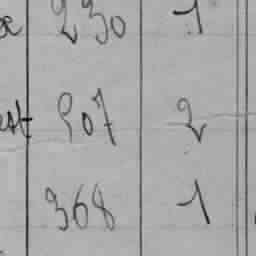 230 1
est 207 2
368 1